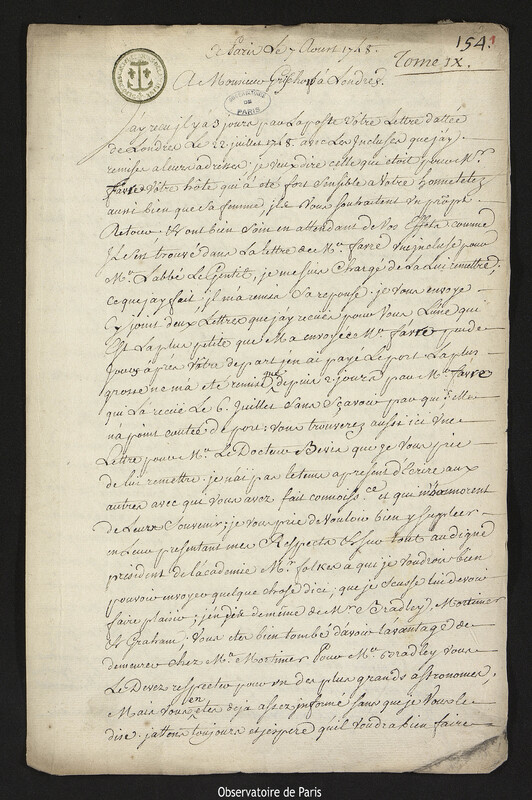 154.
De Paris Le 7 Aoust 1748.
Tome IX.
A Monsieur Grischow à Londres.
OBSERVATOIRE DE PARIS
J'ay reçu il y a 3 jours par La poste Votre Lettre dattée
de Londres Le 22 juillet 1748. avec Les Incluses que j'ay
remises a leurs adresses. je veux dire celle que etoit pour Mr.
Favre Votre hôte qui a été fort sensible a Votre honnetetez
aussi bien que Sa femme, ils Vous souhaitent un prompt
Retour. Et ont bien soin en attendant de Vos Effets. comme
Il s'est trouvé dans La lettre de Mr. favre une incluse pour
Mr. L'abbé Le Gentil, je me suis Chargé de La Lui remettre,
ce que jay fait. il m'a remis Sa reponse. je vous envoye
Cy joint deux Lettres que jay recües pour Vous L'une qui
Est La plus petite que M'a envoyée Mr. favre peu de
jours après Votre depart j'en ai payé Le port La plus
grosse ne m'a eté remise que depuis 2 jours par Mr. favre
qui L'a recüe Le 6. Juillet Sans Sçavoir par qui elle
n'a point coutée de port: Vous trouverez aussi ici une
Lettre pour Mr. Le Docteur Bevis que je Vous prie
de lui remettre. je n'ai pas le tems a present d'Ecrire aux
autres avec qui Vous avez fait connoissce. et qui m'honnorent
de Leurs Souvenir; je Vous prie de Vouloir bien y supléer
en Leur presentant mes Respects et sur tout au digne
president de L'academie Mr. folkes a qui je Voudrois bien
pouvoir envoyer quelque chose d'ici; que je Scusse lui devoir
faire plaisir; j'en dis de même de Mrs. Bradley, Mortimer
et Graham. Vous etes bien tombé d'avoir L'avantage de
demeurer chez Mr. Mortimer Pour Mr. Bradley Vous
Le Devez respecter pour un des plus grands astronomes,
Mais Vous en êtes deja assez informé sans que je Vous le
dise. j'attens toujours et j'espere qu'il Voudra bien faire
Observatoire de Paris